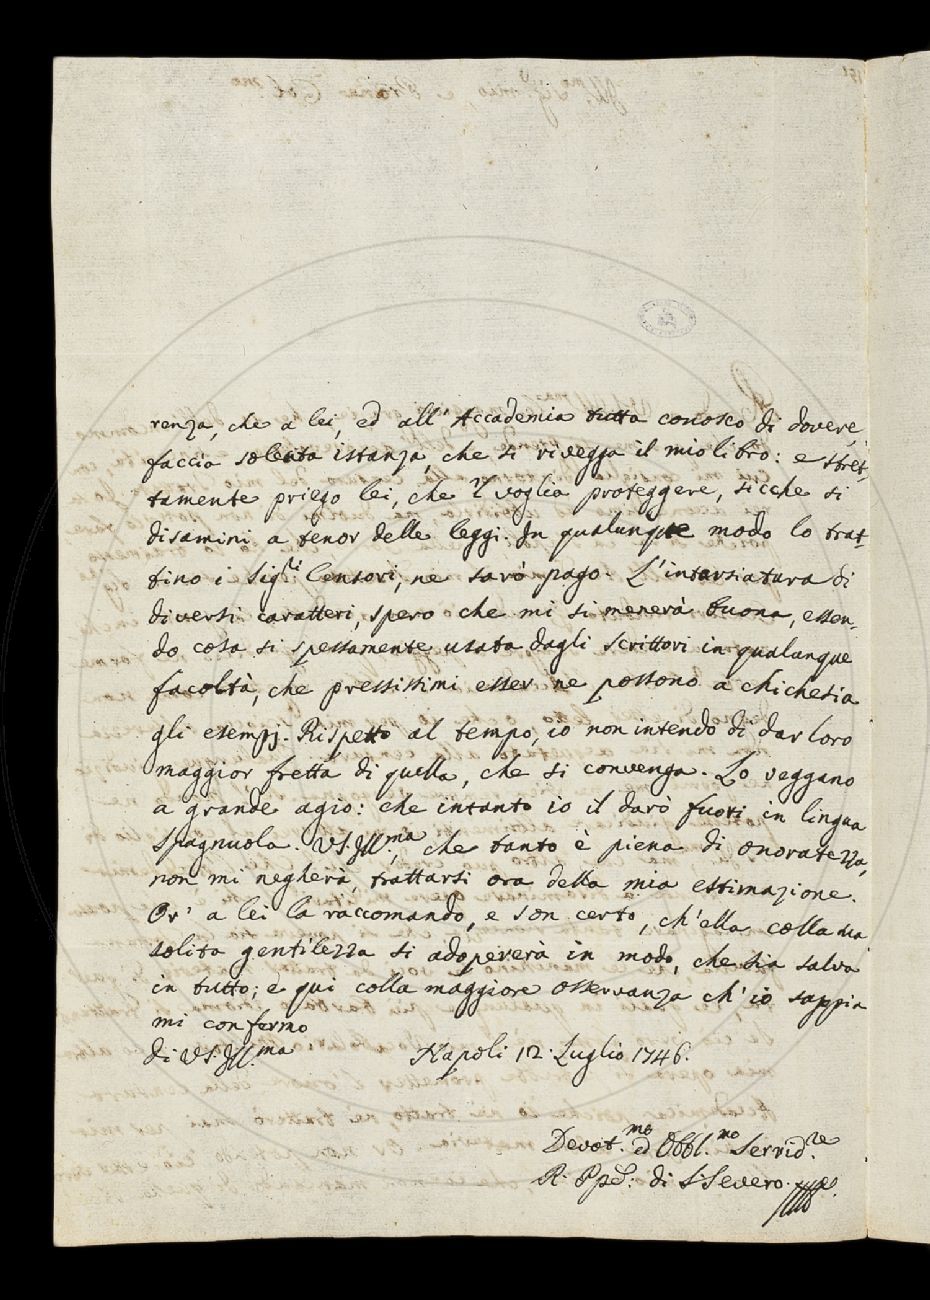 renza, che a lei, ed all' Accademia tutta conosco di dovere,
faccia solenta istanza, che si rivegga il mio libro: e stret-
tamente priego lei, che 'l voglia proteggere, sicche si
disamini a tenor delle leggi. In qualunque modo lo trat-
tino i Sig.ri Censori, ne sarò pago. L'intarsiatura di
diversi caratteri, spero che mi si menerà buona, essen-
do cosa si spessamente usata dagli Scrittori in qualunque
facoltà, che pressissimi esser ne possono a chichesia
gli esempj. Rispetto al tempo, io non intendo di dar loro
maggior fretta di quella, che si convenga. Lo veggano
a grande agio: che intanto io il darò fuori in lingua
Spagnuola. VS. Ill.ma, che tanto è piena di onoratezza,
non mi negherà, trattarsi ora della mia estimazione.
Or' a lei la raccomando, e son certo, ch'ella colla sua
solita gentilezza si adopererà in modo, che sia salva
in tutto; e qui colla maggiore osservanza ch' io sappia
mi confermo
di VS. Ill.ma Napoli 12. Luglio 1746.
Devot.mo ed Obbl.mo Servid.re
R. Ppe: di S. Severo